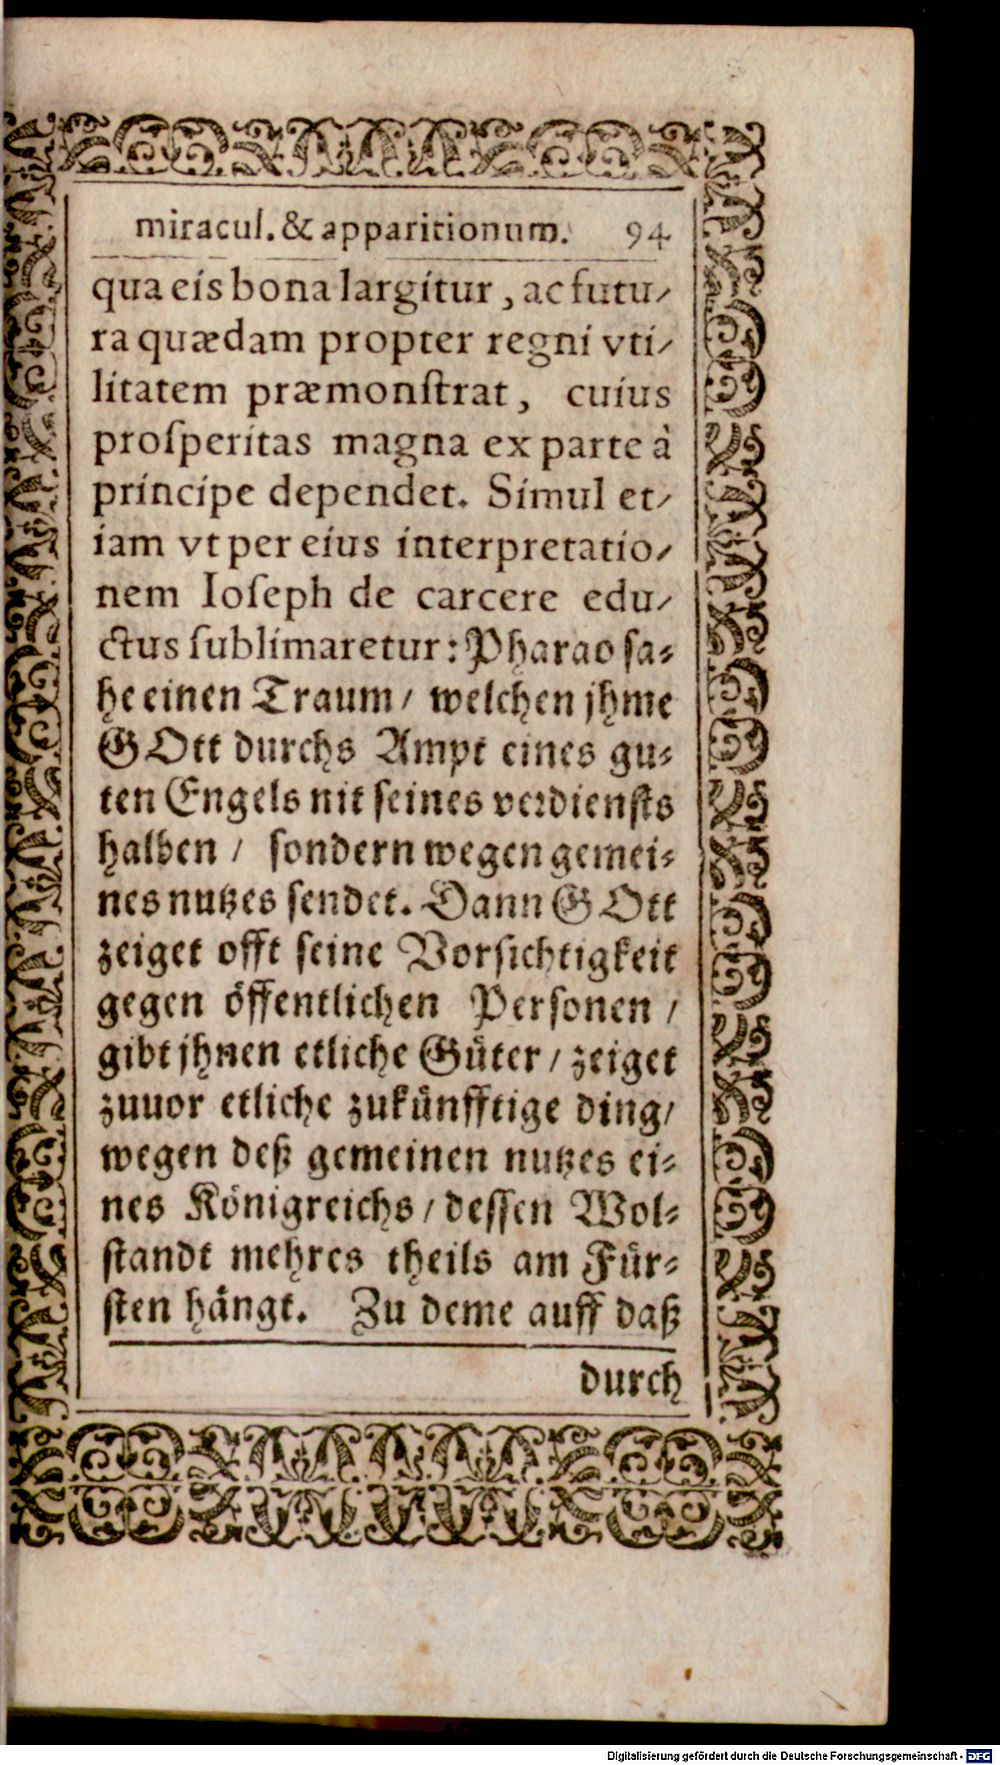 miracul. & apparitionum. 94
qua eis bona largitur, ac futu/
ra quædam propter regni vti/
litatem præmonſtrat, cuius
proſperitas magna ex parte à
principe dependet. Simul et/
iam vt per eius interpretatio/
nem Ioſeph de carcere edu/
ctus ſublimaretur: Pharao ſa⸗
he einen Traum / welchen jhme
GOtt durchs Ampt eines gu⸗
ten Engels nit ſeines verdienſts
halben / ſondern wegen gemei⸗
nes nutzes ſendet. Dann GOtt
zeiget offt ſeine Vorſichtigkeit
gegen öffentlichen Perſonen /
gibt jhnen etliche Güter / zeiget
zuuor etliche zukünfftige ding/
wegen deß gemeinen nutzes ei⸗
nes Königreichs / deſſen Wol⸗
ſtandt mehres theils am Für⸗
ſten hängt. Zu deme auff daß
durch
Digitalisierung gefördert durch die Deutsche Forschungsgemeinschaft - DFG